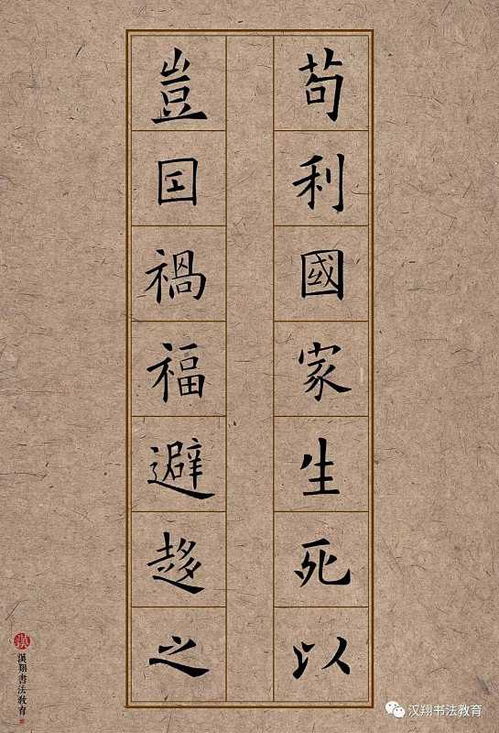 苟利國家生死以
豈囙禍福避趍之
漢翔書法教育
汉翔书法教育